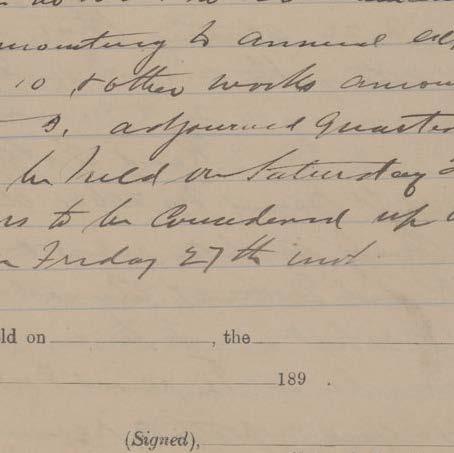 amounting to annual
10, & other works amou
3, adjourned Quarte
be held on Saturday 2
rs to be considered up
Friday 27th inst
ld on , the
189 .
(Signed),